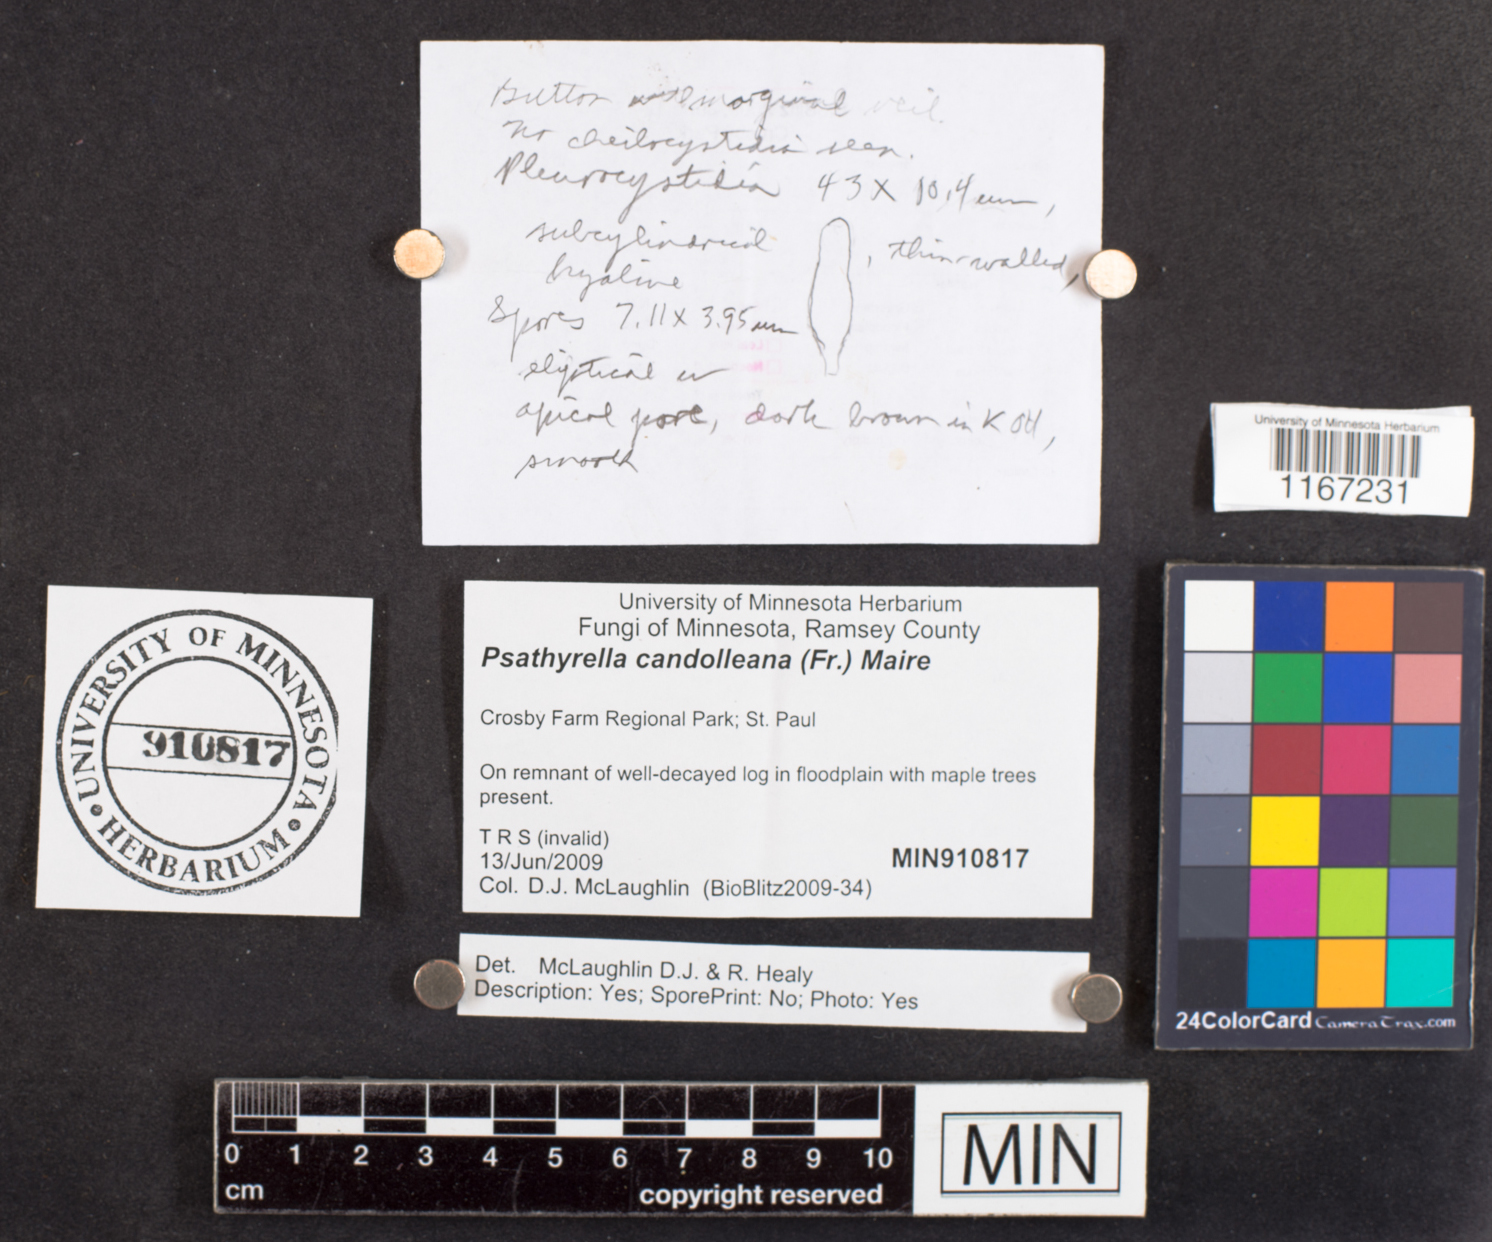 Button with marginal veil.
No cheilocystidia seen.
Pleurocystidia 43 X 10.4 um,
subcylindrical , thin-walled,
hyaline
Spores 7.11 X 3.95 um
eliptical w
apical pore, dark brown in KOH,
smooth
University of Minnesota Herbarium
1167231
UNIVERSITY OF MINNESOTA
910817
• HERBARIUM •
University of Minnesota Herbarium
Fungi of Minnesota, Ramsey County
Psathyrella candolleana (Fr.) Maire
Crosby Farm Regional Park; St. Paul
On remnant of well-decayed log in floodplain with maple trees
present.
T R S (invalid)
13/Jun/2009
MIN910817
Col. D.J. McLaughlin (BioBlitz2009-34)
Det. McLaughlin D.J. & R. Healy
Description: Yes; SporePrint: No; Photo: Yes
24ColorCard CameraTrax.com
0 1 2 3 4 5 6 7 8 9 10
cm copyright reserved
MIN